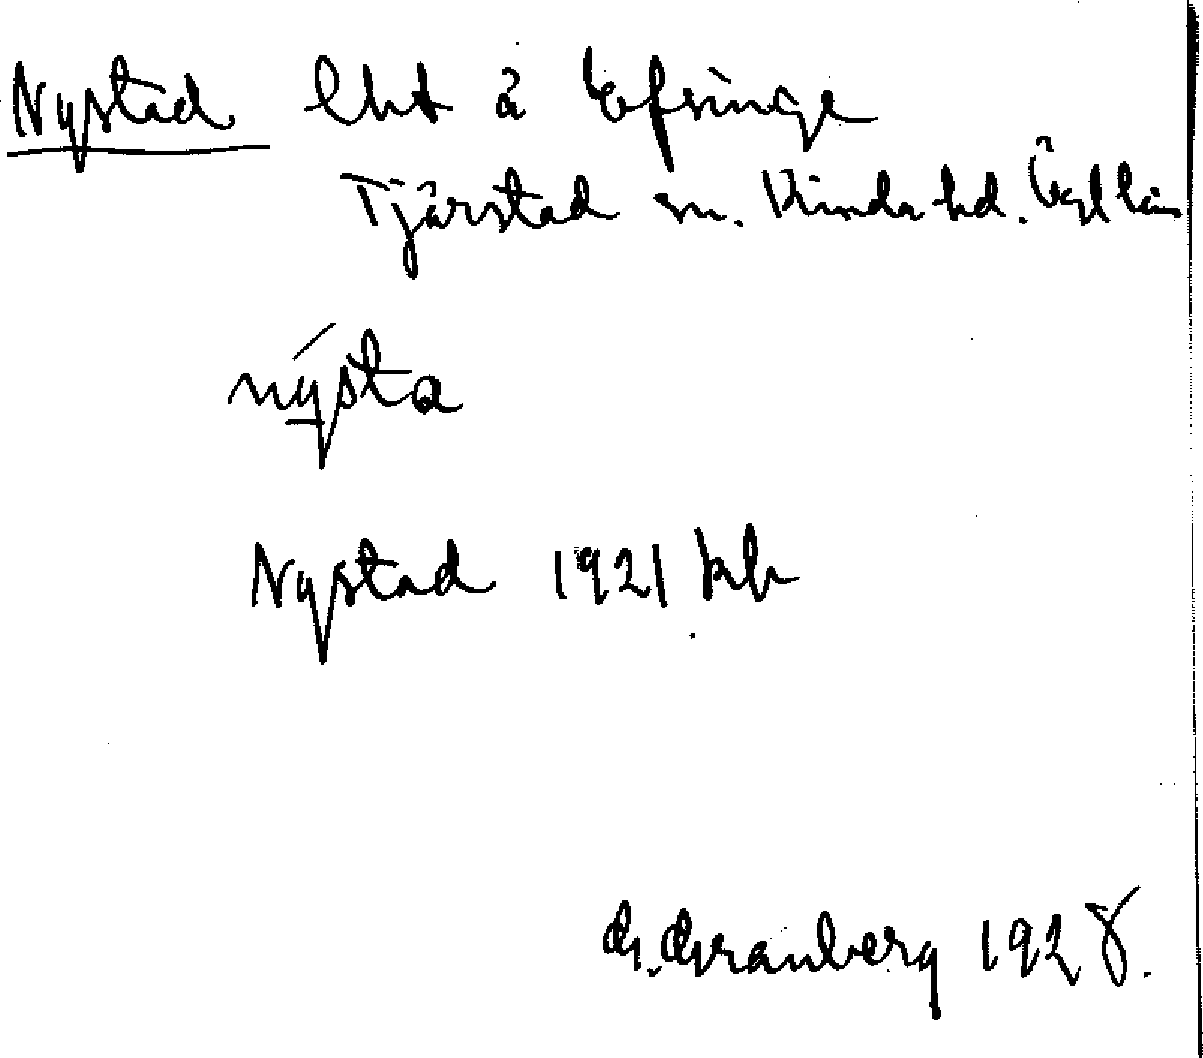 Nystad lht å Efsinge
Tjärstad sn. Kinda hd. Ög l län
nýsta
Nystad 1921 kb
G. Granberg 1928.